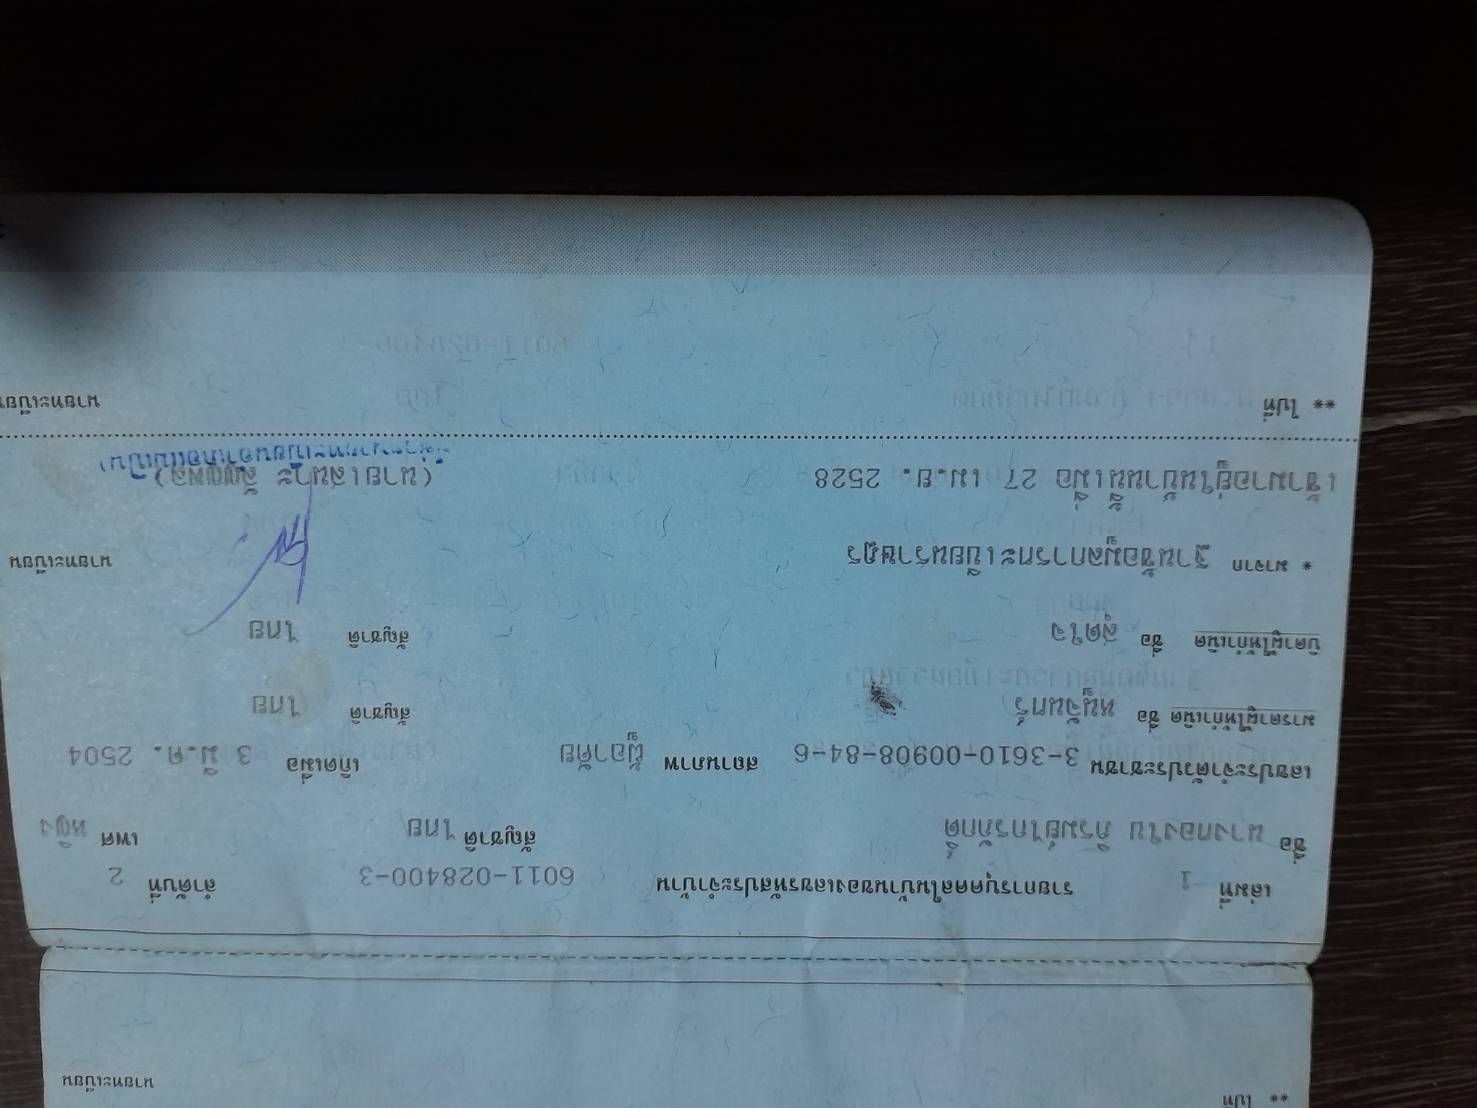 ** ไปที่
นายทะเบียน
เล่มที่ 1 รายการบุคคลในบ้านของเลขรหัสประจำบ้าน 6011-028400-3 ลำดับที่ 2
ชื่อ นางทองใบ ภิรมย์ไกรภักดิ์ สัญชาติ ไทย เพศ หญิง
เลขประจำตัวประชาชน 3-3610-00908-84-6 สถานภาพ ผู้อาศัย เกิดเมื่อ 3 มี.ค. 2504
มารดาผู้ให้กำเนิด ชื่อ หนูจันทร์ สัญชาติ ไทย
บิดาผู้ให้กำเนิด ชื่อ สุดใจ สัญชาติ ไทย
* มาจาก ฐานข้อมูลการทะเบียนราษฎร นายทะเบียน
เข้ามาอยู่ในบ้านนี้เมื่อ 27 เม.ย. 2528 (นายเสนาะ
** ไปที่ นายทะเบียน